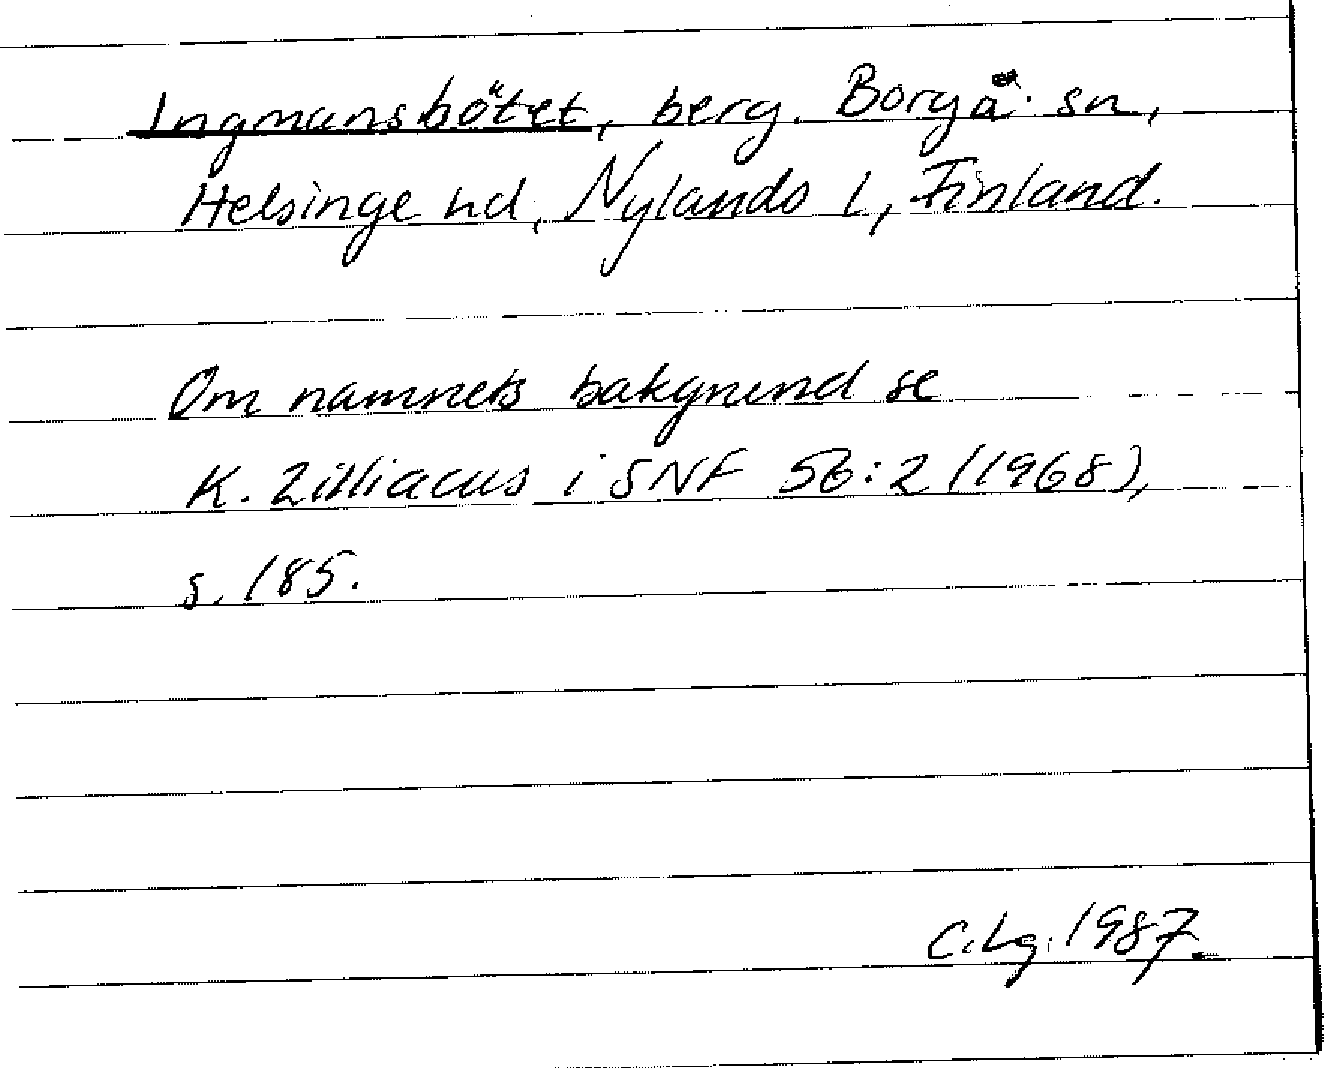 Ingmansbötet, berg. Borgå sn,
Helsinge hd, Nylands l, Finland.
Om namnets bakgrund se
K. Zilliacus i SNF 56:2 (1968),
s. 185.
C.Lg. 1987.